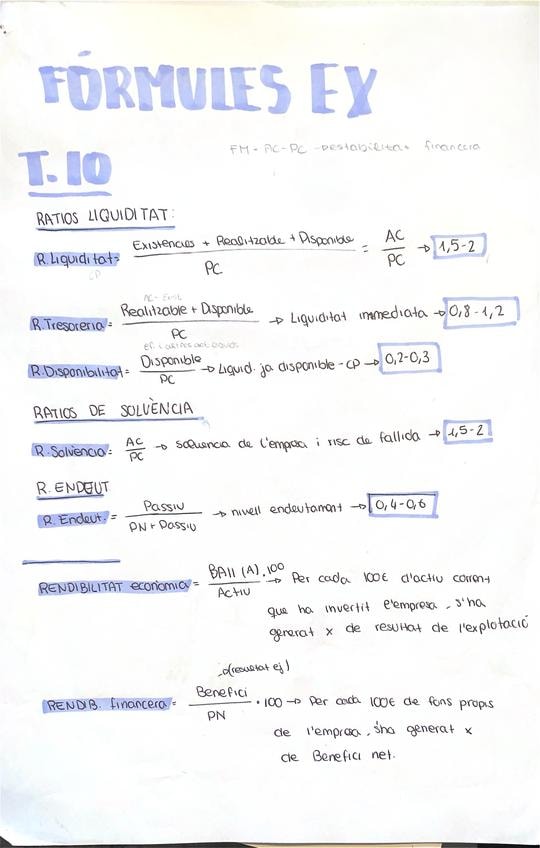 FÓRMULES EX
FM = AC-PC → estabilitat financera
T. 10
RATIOS LIQUIDITAT:
R. Liquiditat = Existencies + Realitzable + Disponible / PC = AC / PC → 1,5-2
CP
AC - Exist.
R. Tresoreria = Realitzable + Disponible / PC → Liquiditat immediata → 0,8-1,2
R. Disponibilitat = Disponible / PC → Liquid. ja disponible - CP → 0,2-0,3
RATIOS DE SOLVÈNCIA
R. Solvència = AC / PC → solvencia de l'empresa i risc de fallida → 1,5-2
R. ENDEUT
R. Endeut. = Passiu / PN + Passiu → nivell endeutament → 0,4-0,6
RENDIBILITAT econòmia = BAII (A) . 100 / Actiu → Per cada 100€ d'actiu corrent
que ha invertit l'empresa, s'ha
generat x de resultat de l'explotació
→(resultat ej)
RENDIB. financera = Benefici / PN • 100 → Per cada 100€ de fons propis
de l'empresa, s'ha generat x
de Benefici net.